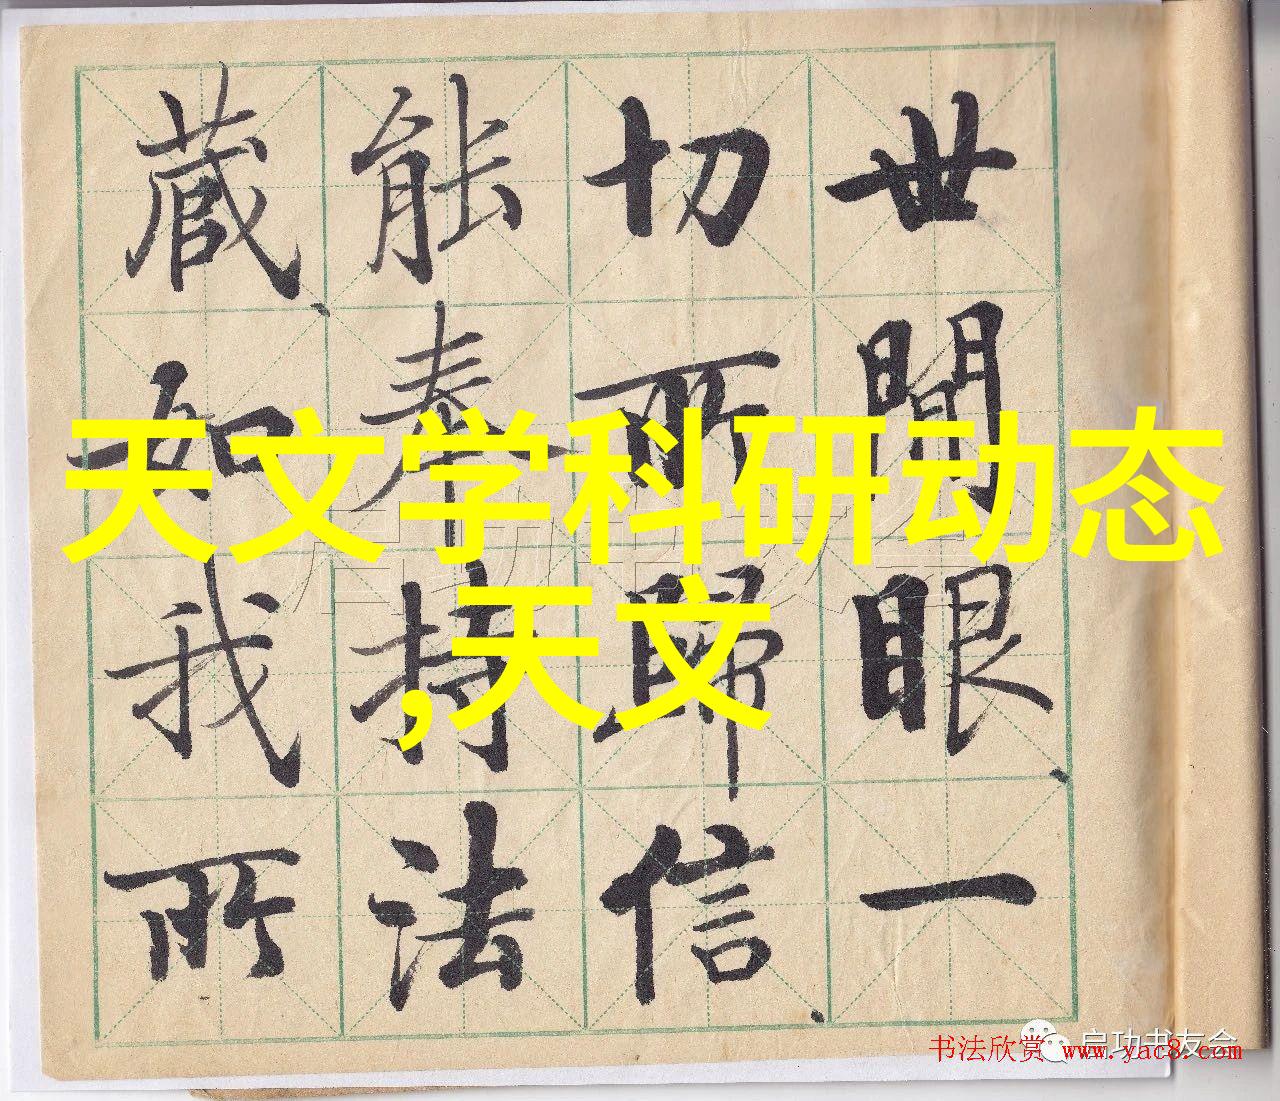 世間眼、一
切所歸信、
能奉持法
藏、如我所
天文学科研动态
,天文
启功书友会
启功书友会
书法欣赏 www.yac8.com